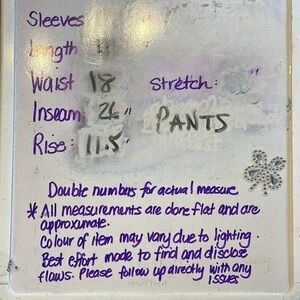 Sleeves "
Length "
Waist 18 Stretch: "
Inseam 26"
Rise: 11.5" PANTS
Double numbers for actual measure
* All measurements are done flat and are
approximate.
Colour of item may vary due to lighting.
Best effort made to find and disclose
flaws. Please follow up directly with any
issues